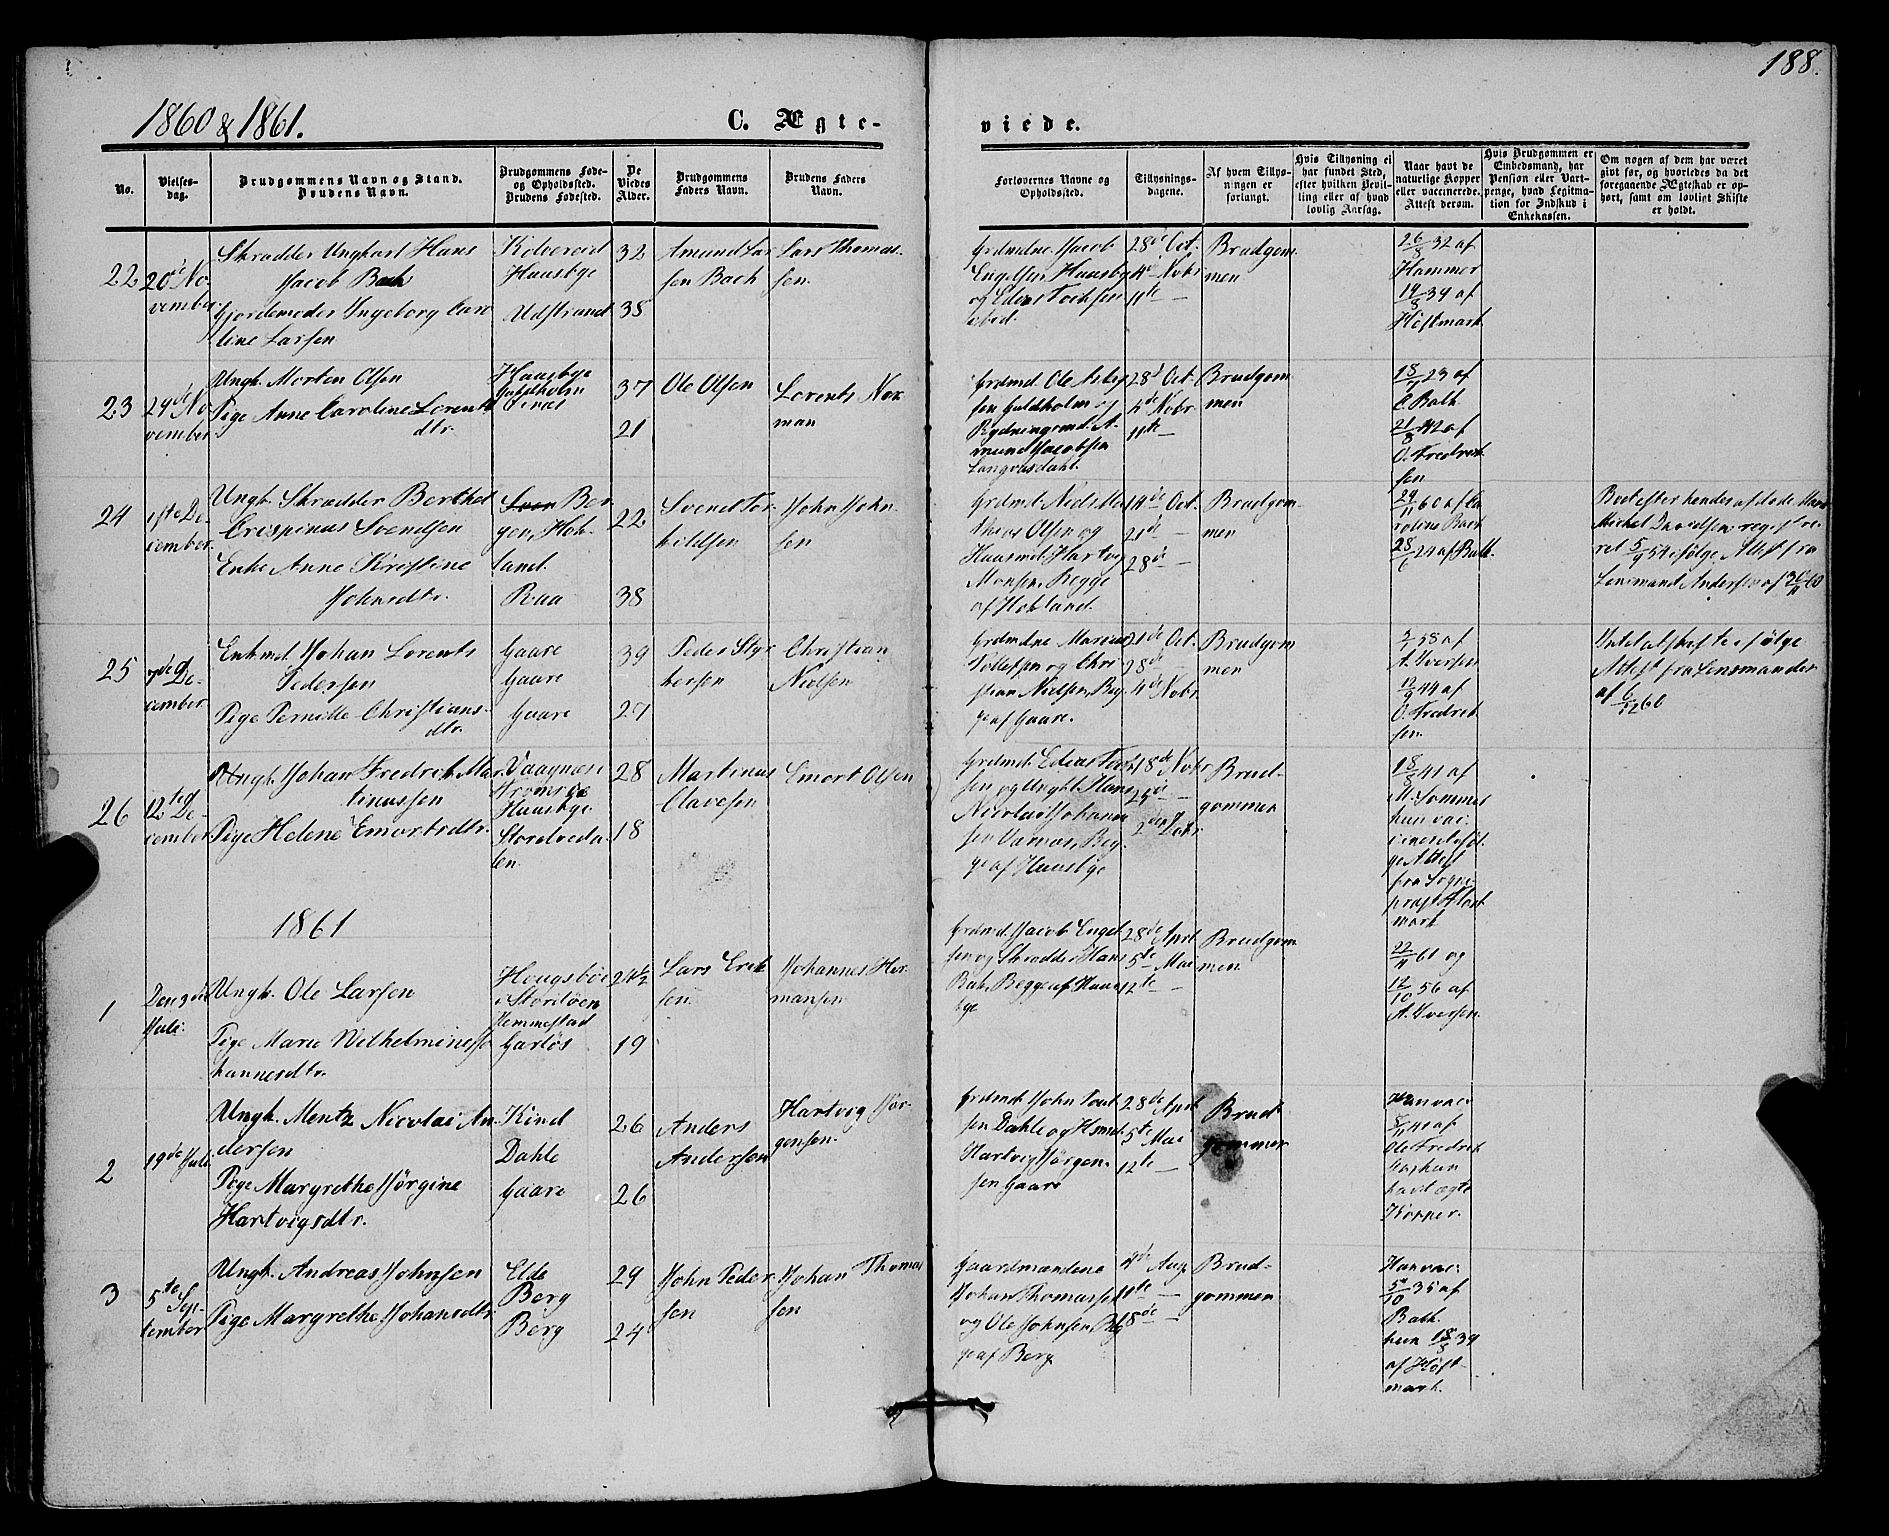 188.
1860 & 1861.
C. Ægte-
viede.
No.
Vielses-
dag.
Brudgommens Navn og Stand.
Brudens Navn.
Brudgommens Føde-
og Opholdssted.
Brudens Fødested.
De
Viedes
Alder.
Brudgommens
Faders Navn.
Brudens Faders
Navn.
Forlovernes Navne og
Opholdssted.
Tillysnings-
dagene.
Af hvem Tillys-
ningen er
forlangt.
Hvis Tillysning ei
har fundet Sted,
efter hvilken Bevil-
ling eller af hvad
lovlig Aarsag.
Naar havt de
naturlige Kopper
eller vaccinerede.
Attest derom.
Hvis Brudgommen er
Embedsmand, har
Pension eller Vart-
penge, hvad Legitima-
tion for Indskud i
Enkekassen.
Om nogen af dem har været
givt før, og hvorledes da det
foregaaende Ægteskab er op-
hørt, samt om lovligt Skifte
er holdt.
22
20de No-
vember
Skrædder Ungkarl Hans
Jacob Bach
Gjordemoder Ingeborg Caro
line Larsen
Kolvereid
Hausbye
Udstrand
32
38
Amund Lar
sen Bach
Lars Thomas-
sen.
Grdmdne Jacob
Engelsen Hausby
ibid.
28de Oct.
4de Nobr
11te —
Brudgom
men
26/8 32 af
Hammer
14/8 39 af
Høstmark
23
29de No
vember
Ungk. Morten Olsen
Pige Anne Caroline Lorents
dtr.
Hausbye
Guldholm
37
21
Ole Olsen
Lorents Nor
man
sen Guldholm og
Rydningsmd. A-
mund Jacobsen
Langvasdahl.
28de Oct.
4de Nobr
11te —
Brudgom
men
18/7 23 af
C. Bath
21/8 42 af
O. Fredrik
sen
24
1ste De-
cember.
Ungk. Skrædder Berthel
Crispinus Svendsen
Enke Anne Kristine
Johnsdtr.
Ber
gen, Hob-
land.
Raa
22
38
Svend Tor
kildsen
John John-
sen
Grdmd. Niels Ma
thias Olsen og
Huusmd. Hartvig
Monsen, Begge
af Hobland.
14de Oct.
21de —
28de —
Brudgom-
men
29/11 60 af Ca
roline Bach
28/6 24 af Bath.
Boet efter hendes afdøde Mand
Michel Davidsen registre-
ret 5/9 54 ifølge Attest fra
Lensmand Andersen af 30/11 60
25
7de De-
cember
Enkmd. Johan Lorents
Pedersen
Pige Pernille Christians-
dtr.
Gaare
Gaare
Gaare
39
27
Peder Styr
kersen
Christian
Nielsen
Grdmdne Marius
og Chri
stian Nielsen, Beg
ge af Gaare.
21de Oct.
28de —
4de Nobr
Brudgom
men
58 af
A. Iversen
12/9 44 af
O. Fredrik
sen.
Attest fra Lensmanden
af 6/12 60
26
12te De-
cember
Ungk. Johan Fredrik Mar
tinussen
Pige Helene Emertsdtr.
Vaagnæs i
Tromsøe
Hausbye
Storelvda-
len.
28
18
Martinus
Olavesen
Emert Olsen
Grdmd. Edias Toch
sen og Ungk. Hans
Nicolai Johan
sen Vamoe, Beg-
ge af Hausbye
18de Nobr
25de —
2den Decbr
Brud-
gommen
18/8 41 af
M. Sommer
hun vac-
cineret iføl
ge Attest
fra Sogne-
præst Høst
mark
1861
1
Den 3die
Juli.
Ungk. Ole Larsen
Pige Marie Wilhelmine Jo
hannesdtr.
Hougsbøe
i Stordøen
Hemmestad
Garløs
24½
19
Lars Erik
sen
Johannes Her
mansen
Grdmd. Jacob Engel
sen og Skrædder Hans
Bach, Begge af Haus
bye
28de April
5te Mai
12te —
Brudgom
men
22/11 61 og
12/10 56 af
A. Iversen.
2
19de Juli
Ungk. Mentz Nicolai An-
dersen
Pige Margrethe Jørgine
Hartvigsdtr.
Kind
Dahle
Gaare
26
26
Anders
Andersen
Hartvig Jør-
gensen.
Grdmd. John Paul
sen Dahle og Hsmd.
Hartvig Jørgen-
sen Gaare
28de April
5te Mai
12te —
Brud-
gommen
Han vac.
41 af
Ole Fredrik
havt ægte
Kopper.
3
5te Sep-
tember
Ungk. Andreas Johnsen
Pige Margrethe Johansdtr
Elde
Berg
Berg
29
24
John Peder
sen
Johan Thomas
sen
Gaardmændene
Johan Thomassen
og Ole Johnsen, Beg
ge af Berg
4de Aug.
11te —
18de —
Brud-
gommen
Han vac.
5/10 35 af
Bath.
hun 18/8 39
af Høst-
mark.